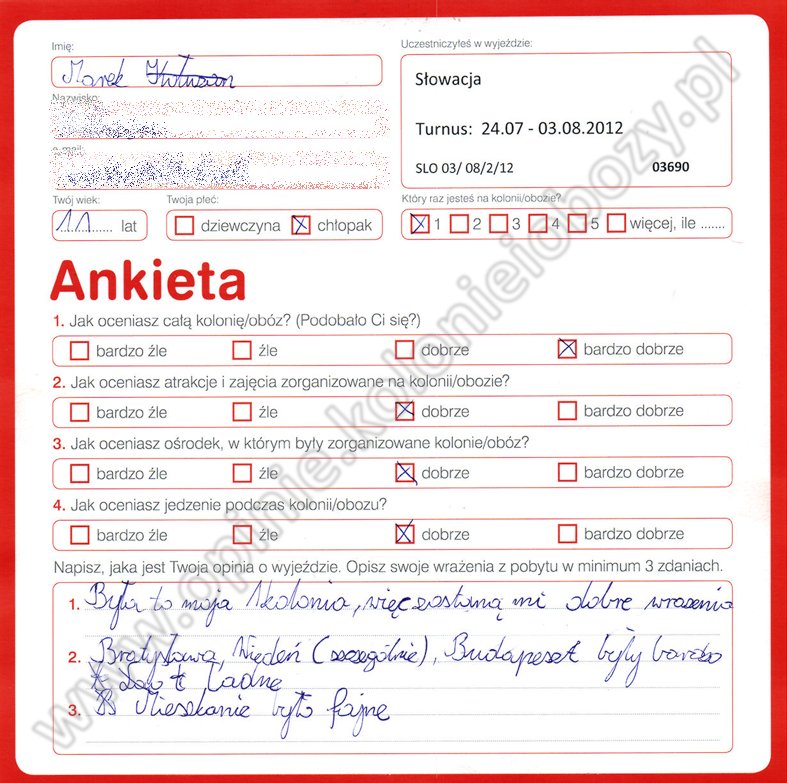 Imię:
Marek
Nazwisko:
e-mail:
Uczestniczyłeś w wyjeździe:
Słowacja
Turnus: 24.07 - 03.08.2012
SLO 03/ 08/2/12 03690
Twój wiek:
11 lat
Twoja płeć:
dziewczyna chłopak
Który raz jesteś na kolonii/obozie?
1 2 3 4 5 więcej, ile .......
Ankieta
1. Jak oceniasz całą kolonię/obóz? (Podobało Ci się?)
bardzo źle źle dobrze bardzo dobrze
2. Jak oceniasz atrakcje i zajęcia zorganizowane na kolonii/obozie?
bardzo źle źle dobrze bardzo dobrze
3. Jak oceniasz ośrodek, w którym były zorganizowane kolonie/obóz?
bardzo źle źle dobrze bardzo dobrze
4. Jak oceniasz jedzenie podczas kolonii/obozu?
bardzo źle źle dobrze bardzo dobrze
Napisz, jaka jest Twoja opinia o wyjeździe. Opisz swoje wrażenia z pobytu w minimum 3 zdaniach.
1. Była to moja 1 kolonia, więc zostaną mi dobre wrazenia
2. Bratysława, Wiedeń (szczególnie), Budapeszt były bardzo
ładne
3. Mieszkanie było fajne
www.opinie.kolonieiobozy.pl